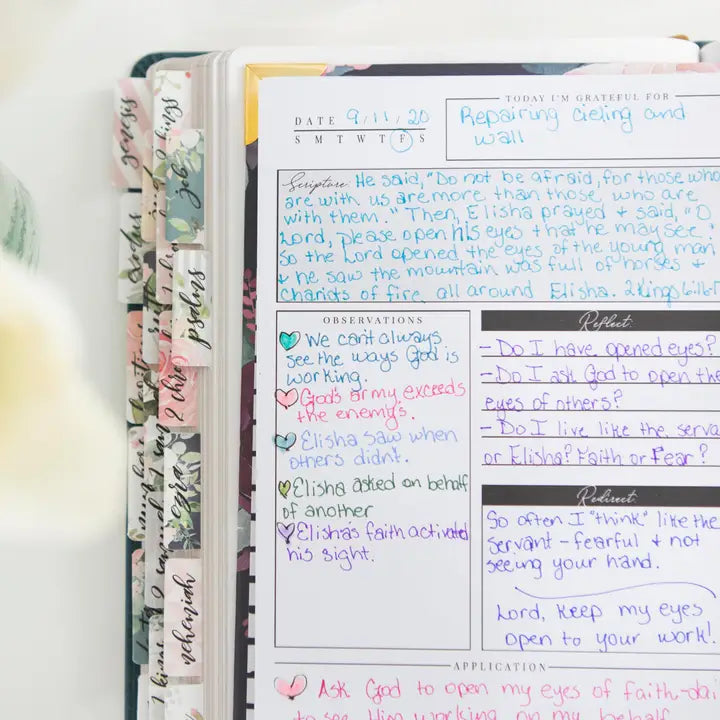 genesis
2 kings
job
exodus
psalms
2 chro
ezra
nehemiah
1 kings
TODAY I'M GRATEFUL FOR
DATE 9/11/20
S M T W T F S
Repairing cieling and
wall
Scripture: He said, "Do not be afraid, for those who
are with us are more than those who are
with them." Then, Elisha prayed & said, "O
Lord, please open his eyes that he may see."
So the Lord opened the eyes of the young man
& he saw the mountain was full of horses &
Chariots of fire all around Elisha. 2 Kings 6:16-17
OBSERVATIONS
We can't always
see the ways God is
working.
God's army exceeds
the enemy's.
Elisha saw when
others didn't.
Elisha asked on behalf
of another
Elisha's faith activated
his sight.
Reflect:
- Do I have opened eyes?
- Do I ask God to open the
eyes of others?
- Do I live like the serva
or Elisha? Faith or Fear?
Redirect:
So often I "think" like the
servant - fearful & not
seeing your hand.
Lord, keep my eyes
open to your work!
APPLICATION
Ask God to open my eyes of faith-dai
to see Him working on my behalf